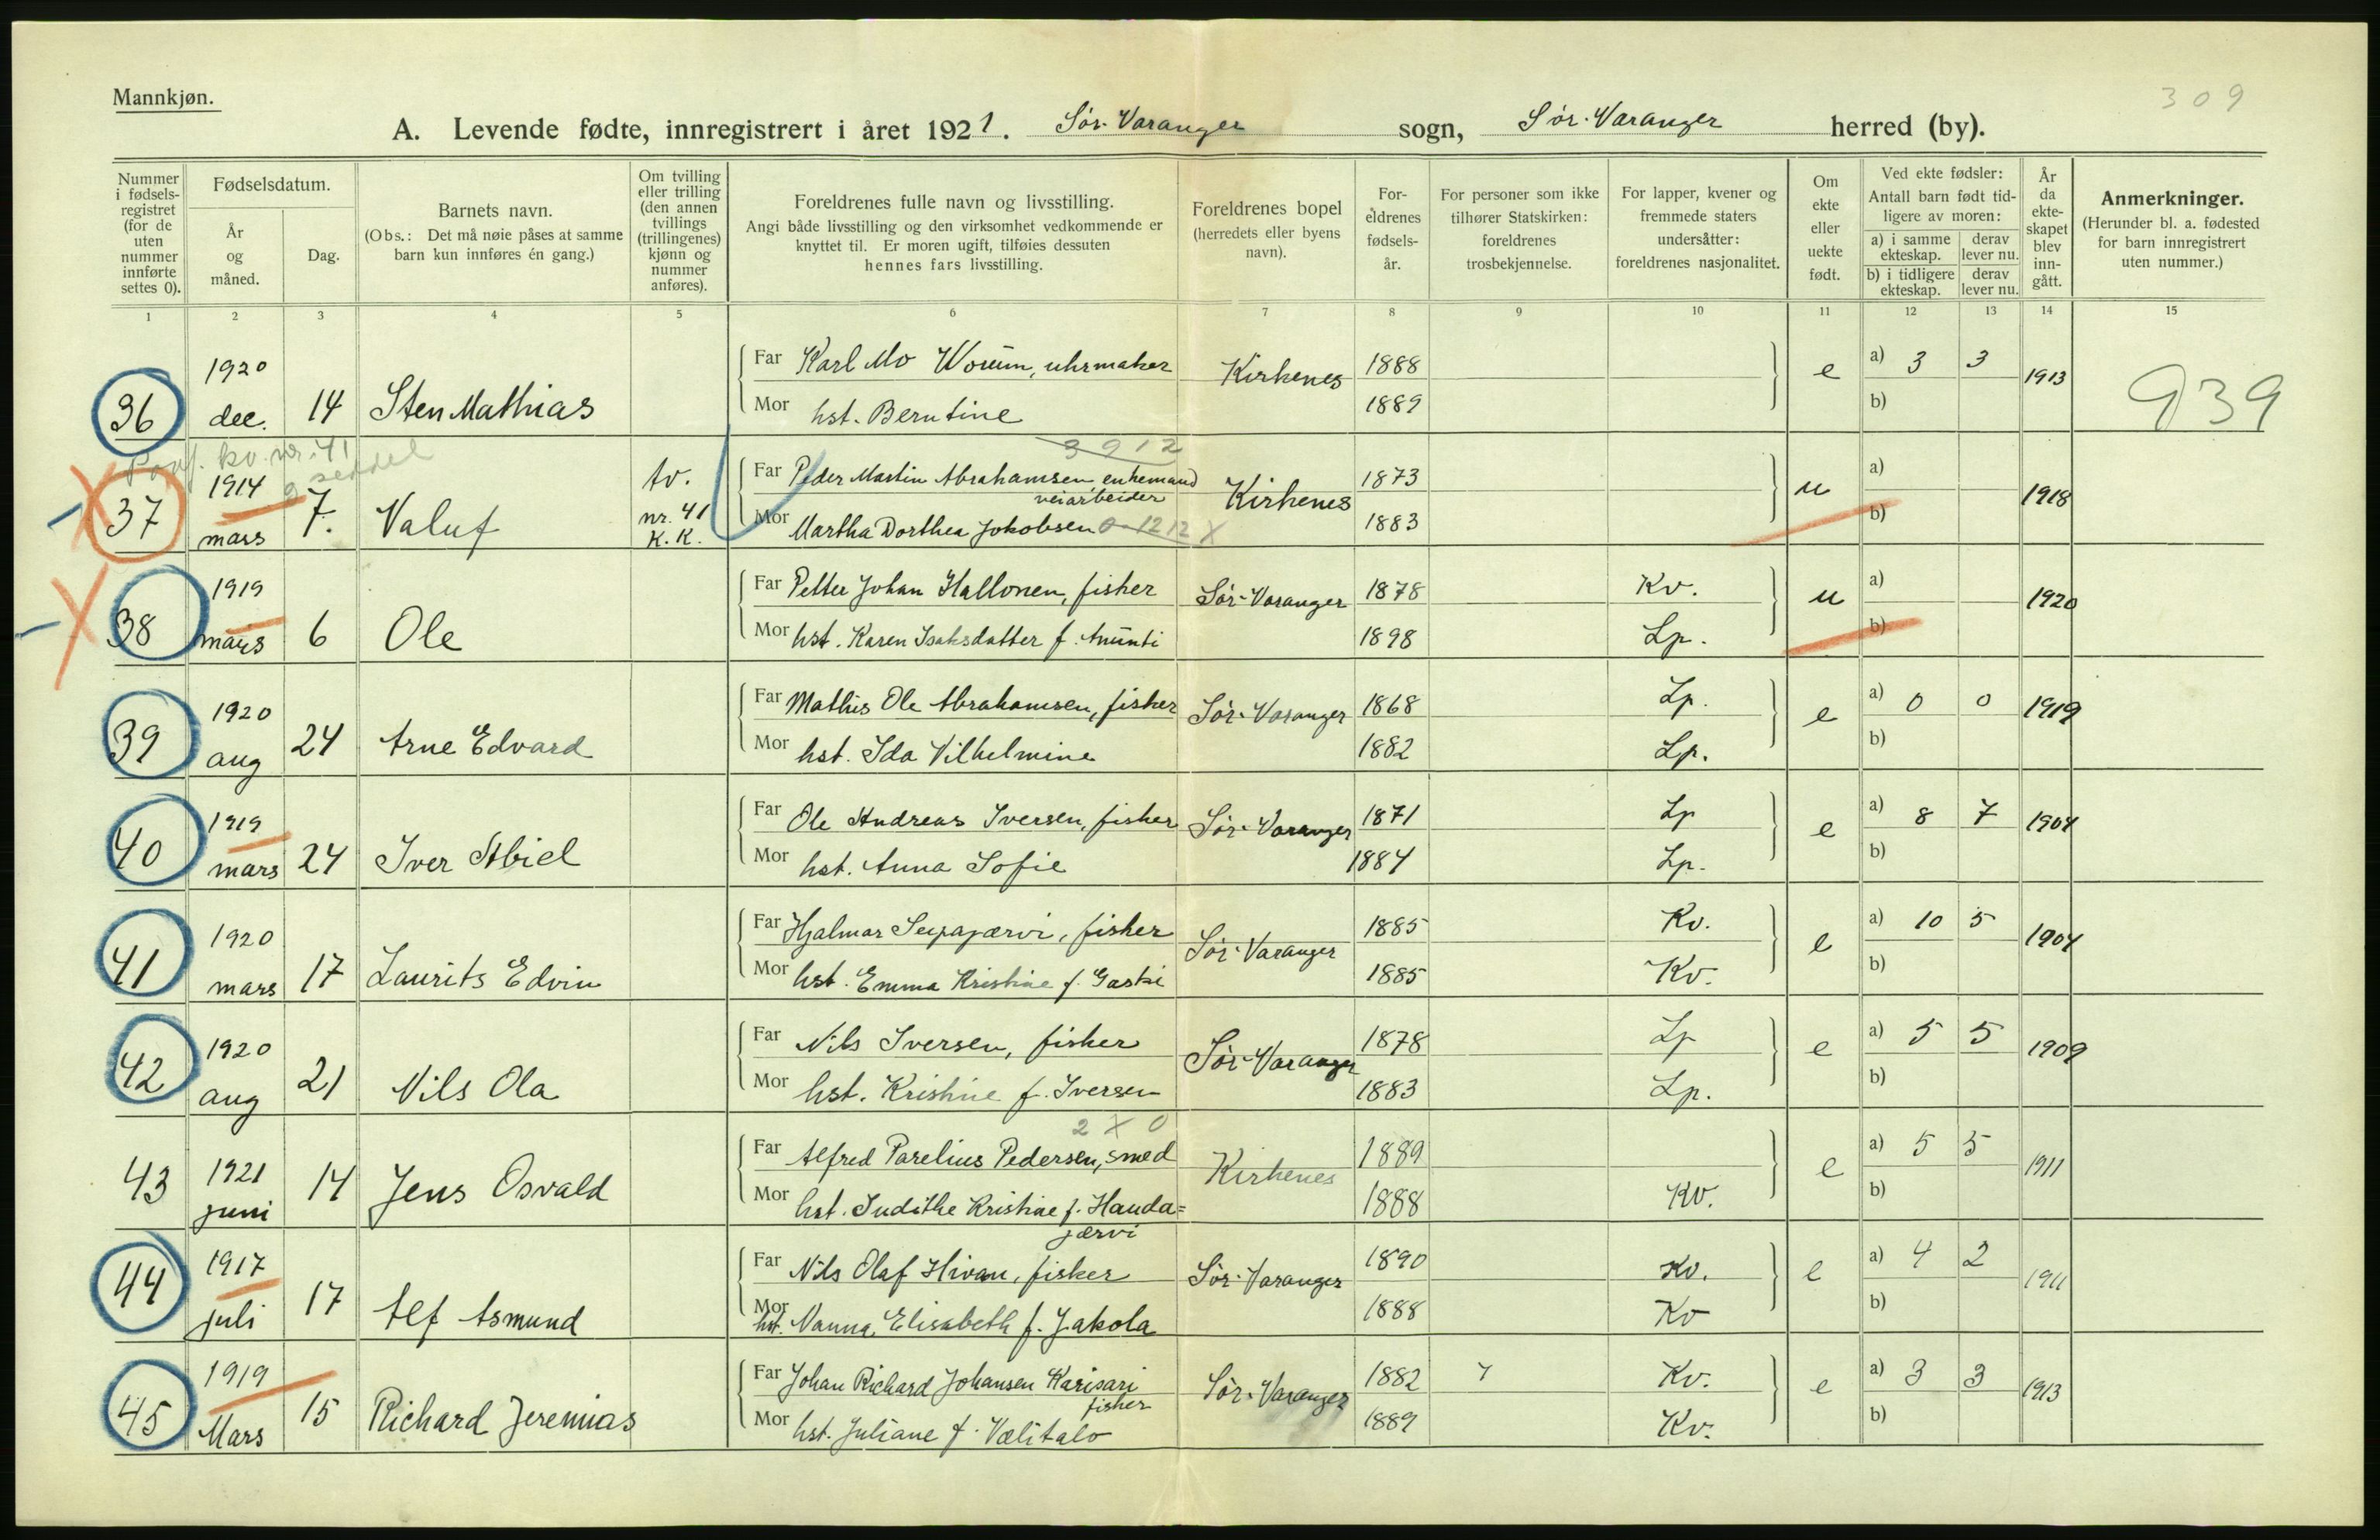 309
Mannkjøn.
A. Levende fødte, innregistrert i året 1921. Sør-Varanger sogn, Sør-Varanger herred (by).
Nummer i fødsels-registret (for de uten nummer innførte settes 0).
Fødselsdatum.
År og måned.
Dag.
Barnets navn.
(Obs.: Det må nøie påses at samme barn kun innføres én gang.)
Om tvilling eller trilling (den annen tvillings (trillingenes) kjønn og nummer anføres).
Foreldrenes fulle navn og livsstilling.
Angi både livsstilling og den virksomhet vedkommende er knyttet til. Er moren ugift, tilføies dessuten hennes fars livsstilling.
Foreldrenes bopel (herredets eller byens navn).
For-eldrenes fødsels-år.
For personer som ikke tilhører Statskirken: foreldrenes trosbekjennelse.
For lapper, kvener og fremmede staters undersåtter: foreldrenes nasjonalitet.
Om ekte eller uekte født.
Ved ekte fødsler: Antall barn født tid-ligere av moren:
a) i samme ekteskap. derav lever nu.
b) i tidligere ekteskap. derav lever nu.
År da ekte-skapet blev inn-gått.
Anmerkninger.
(Herunder bl. a. fødested for barn innregistrert uten nummer.)
1 2 3 4 5 6 7 8 9 10 11 12 13 14 15
36 1920 dec. 14 Sten Mathias
Far Karl Mo Worum, uhrmaker Kirkenes 1888 e a) 3 3 1913 939
Mor hst. Berntine 1889 b)
kv. nr. 41 seddel
3912
37 1914 mars 7. Valuf tv. nr. 41 K.K.
Far Peder Martin Abrahamsen, enkemand veiarbeider Kirkenes 1873 u a) 1918
Mor Martha Dorthea Jokobsen 0-1212 X 1883 b)
38 1919 mars 6 Ole
Far Petter Johan Hallonen, fisker Sør-Varanger 1878 Kv. u a) 1920
Mor hst. Karen Isaksdatter f. Anunti 1898 Lp. b)
39 1920 aug 24 Arne Edvard
Far Mathis Ole Abrahamsen, fisker Sør-Varanger 1868 Lp. e a) 0 0 1919
Mor hst. Ida Vilhelmine 1882 Lp. b)
40 1919 mars 24 Iver Abiel
Far Ole Andreas Iversen, fisker Sør-Varanger 1871 Lp e a) 8 7 1904
Mor hst. Anna Sofie 1884 Lp. b)
41 1920 mars 17 Laurits Edvin
Far Hjalmar Seipajærvi, fisker Sør-Varanger 1885 Kv. e a) 10 5 1904
Mor hst. Emma Kristine f. Gaski 1885 Kv. b)
42 1920 aug 21 Nils Ola
Far Nils Iversen, fisker Sør-Varanger 1878 Lp e a) 5 5 1909
Mor hst. Kristine f. Iversen 1883 Lp. b)
2 X 0
43 1921 juni 14 Jens Osvald
Far Alfred Parelius Pedersen, smed Kirkenes 1889 e a) 5 5 1911
Mor hst. Judithe Kristine f. Hauda=jærvi 1888 Kv. b)
44 1917 juli 17 Alf Asmund
Far Nils Olaf Hivan, fisker Sør-Varanger 1890 Kv. e a) 4 2 1911
Mor hst. Nanna Elisabeth f. Jakola 1888 Kv b)
45 1919 Mars 15 Richard Jeremias
Far Johan Richard Johansen Karisari fisher Sør-Varanger 1882 Kv. e a) 3 3 1913
Mor hst. Juliane f. Vælitalo 1889 Kv. b)